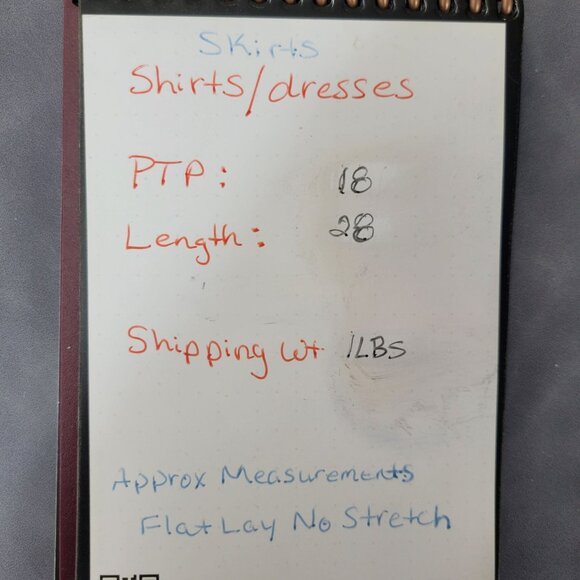 Skirts
Shirts/dresses
PTP: 18
Length: 28
Shipping Wt 1LBS
Approx Measurements
Flat Lay No Stretch